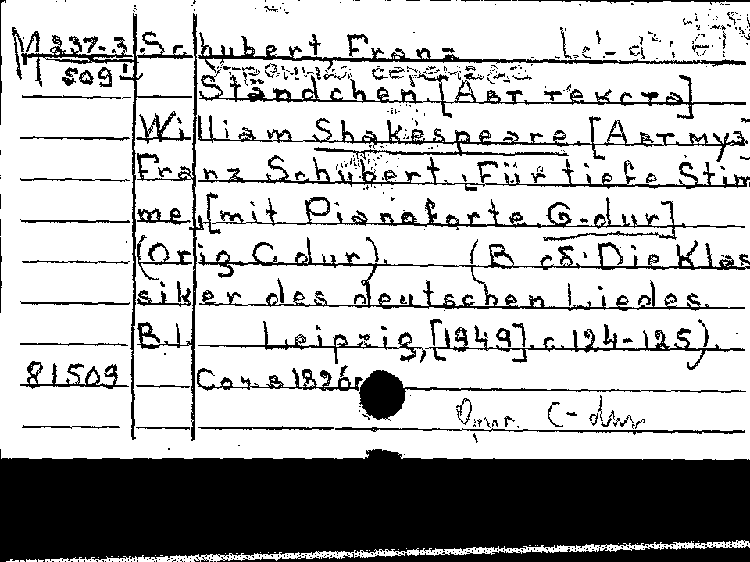 М 237-3 Schubert, Franz [c¹- d²; G]
509 I Утренняя серенада
Ständchen. [Авт. текста]
William Shakespeare. [Авт. муз
Franz Schubert. Für tiefe Stim
me, [mit Pianoforte. G-dur].
(Orig. C dur). (В сб: Die Klas
siker des deutschen Liedes.
B.I. Leipzig, [1949]. с. 124-125).
81509 Соч. в 1826г
Ориг. C-dur